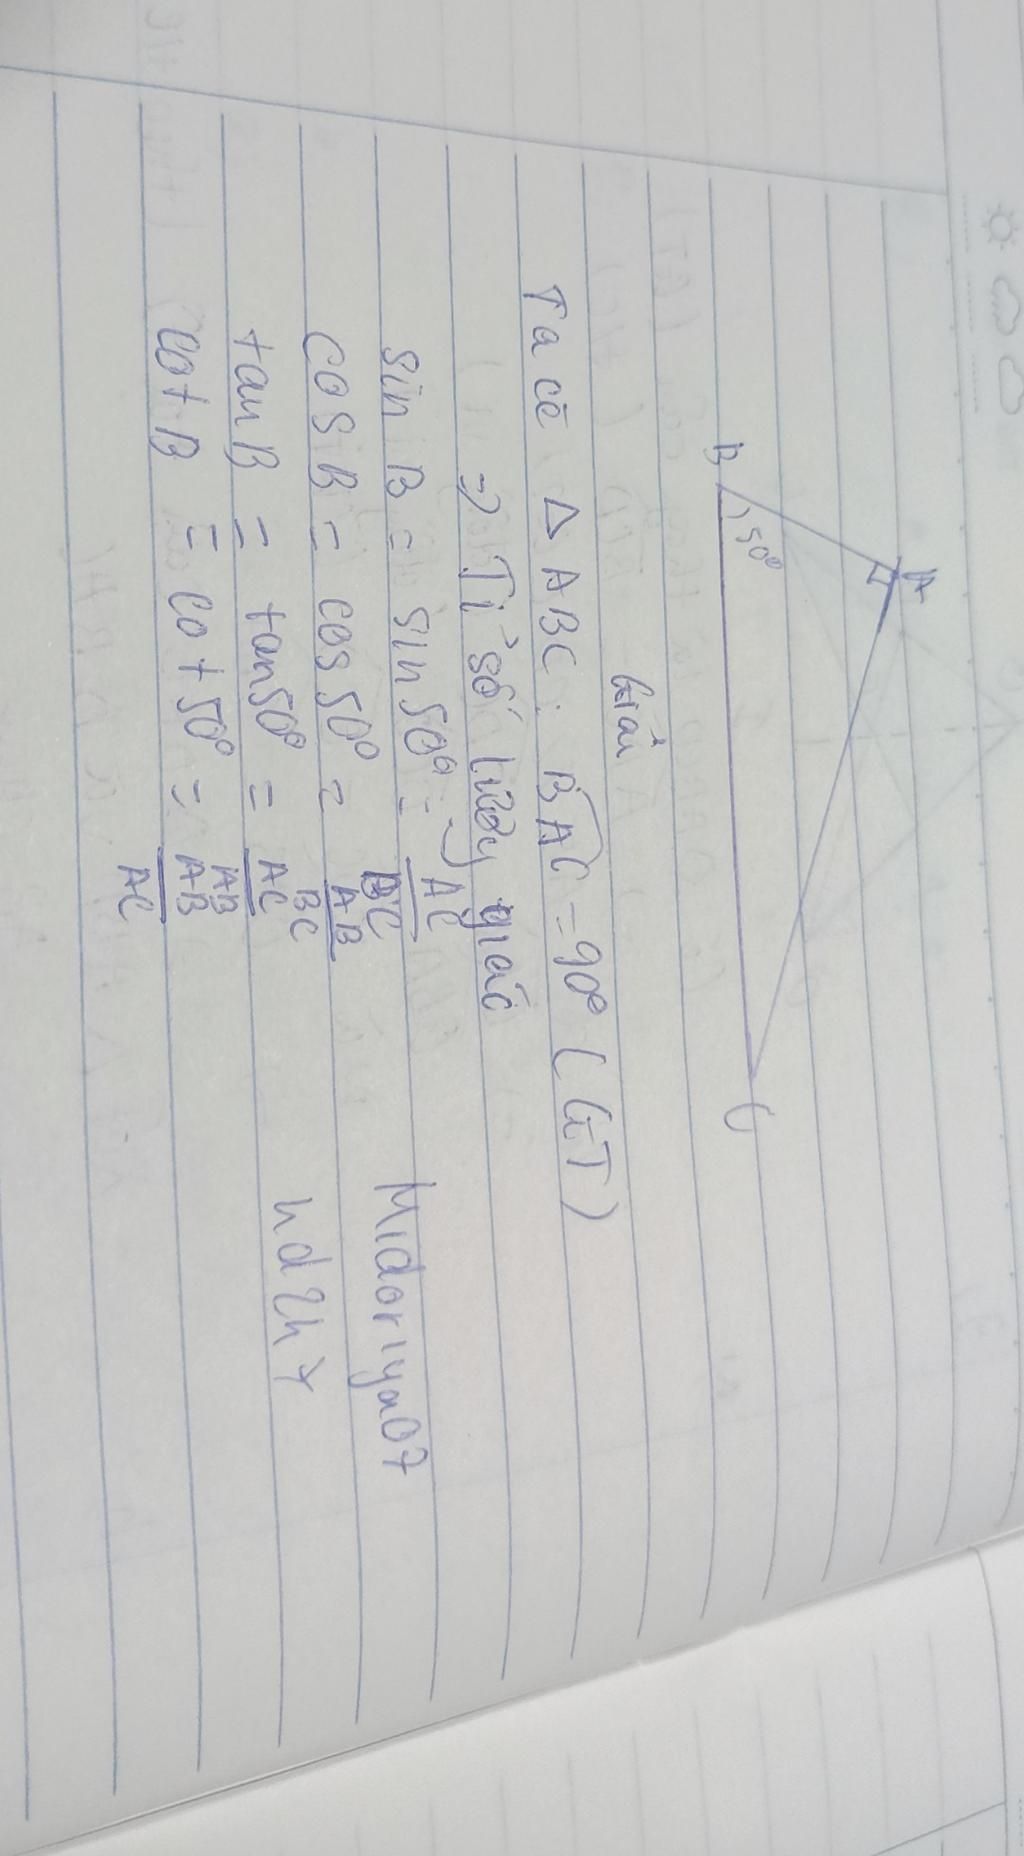 A
B
50°
C
Giải
Ta có △ ABC: BAC = 90° (GT)
=> Tỉ số lượng giác
sin B = sin 50° = AC/BC
cos B = cos 50° = AB/BC
tan B = tan 50° = AC/AB
cot B = cot 50° = AB/AC
Midoriya07
hd2h7